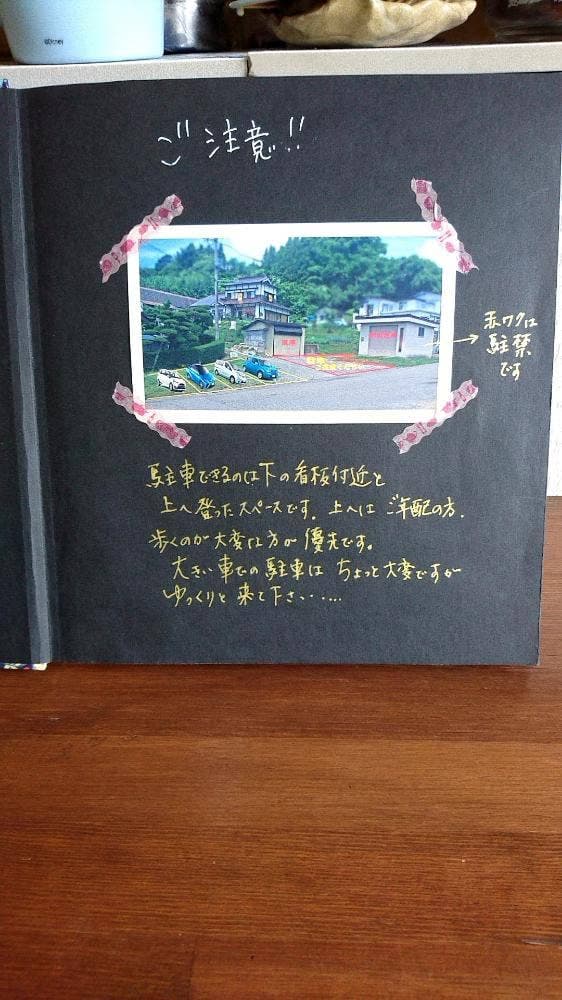 ご注意!!
赤ワクは
駐禁
です
駐車できるのは下の看板付近と
上へ登ったスペースです。上へは ご年配の方.
歩くのが大変な方が優先です。
大きい車での駐車は ちょっと大変ですが
ゆっくりと来て下さい・・・・・